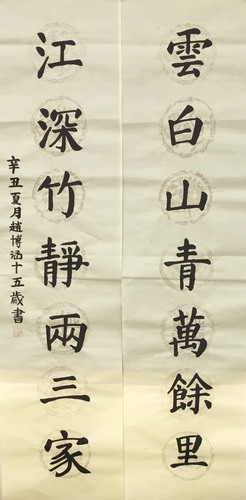 雲白山青萬餘里
江深竹靜兩三家
辛丑夏月趙博涵十五歲書